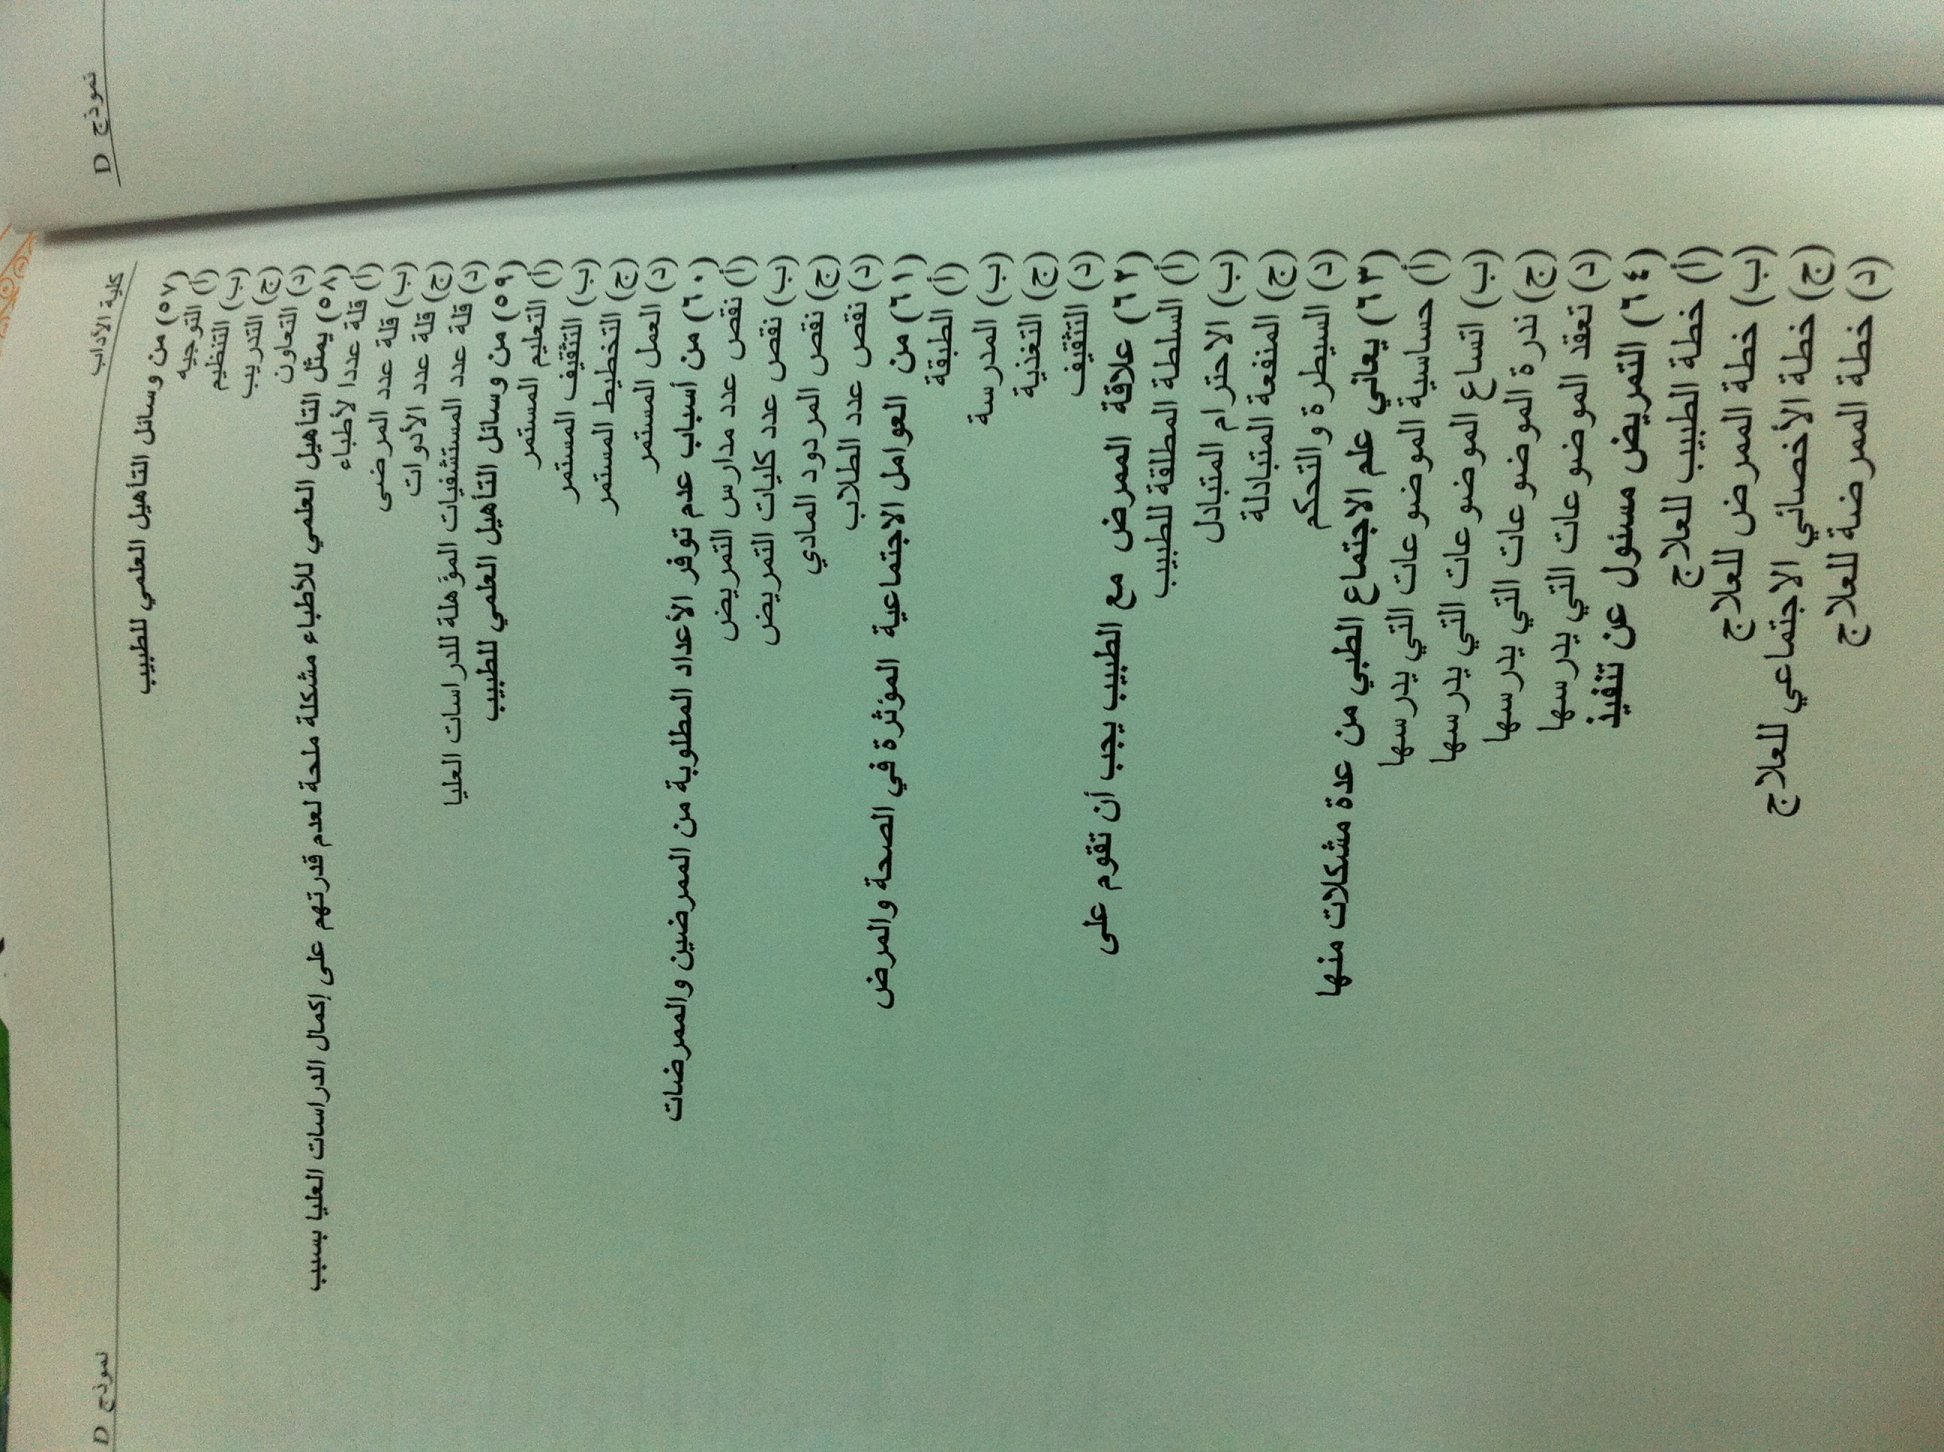 كلية الآداب
نموذج D
(٥٧) من وسائل التأهيل العلمي للطبيب
(أ) التوجيه
(ب) التنظيم
(ج) التدريب
(د) التعاون
(٥٨) يمثل التأهيل العلمي للأطباء مشكلة ملحة لعدم قدرتهم على إكمال الدراسات العليا بسبب
(أ) قلة عددا لأطباء
(ب) قلة عدد المرضى
(ج) قلة عدد الأدوات
(د) قلة عدد المستشفيات المؤهلة للدراسات العليا
(٥٩) من وسائل التأهيل العلمي للطبيب
(أ) التعليم المستمر
(ب) التثقيف المستمر
(ج) التخطيط المستمر
(د) العمل المستمر
(٦٠) من أسباب عدم توفر الأعداد المطلوبة من الممرضين والممرضات
(أ) نقص عدد مدارس التمريض
(ب) نقص عدد كليات التمريض
(ج) نقص المردود المادي
(د) نقص عدد الطلاب
(٦١) من العوامل الاجتماعية المؤثرة في الصحة والمرض
(أ) الطبقة
(ب) المدرسة
(ج) التغذية
(د) التثقيف
(٦٢) علاقة الممرض مع الطبيب يجب أن تقوم على
(أ) السلطة المطلقة للطبيب
(ب) الاحترام المتبادل
(ج) المنفعة المتبادلة
(د) السيطرة والتحكم
(٦٣) يعاني علم الاجتماع الطبي من عدة مشكلات منها
(أ) حساسية الموضوعات التي يدرسها
(ب) اتساع الموضوعات التي يدرسها
(ج) ندرة الموضوعات التي يدرسها
(د) تعقد الموضوعات التي يدرسها
(٦٤) التمريض مسئول عن تنفيذ
(أ) خطة الطبيب للعلاج
(ب) خطة الممرض للعلاج
(ج) خطة الأخصائي الاجتماعي للعلاج
(د) خطة الممرضة للعلاج
نموذج D